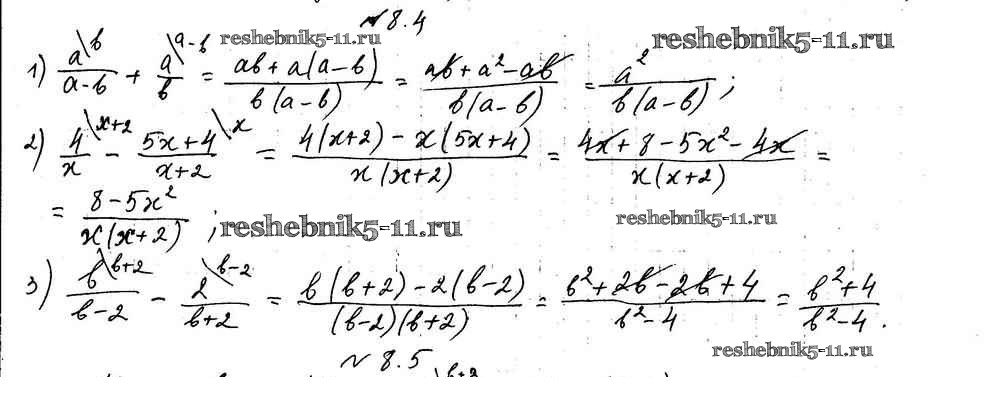 № 8.4
reshebnik5-11.ru
reshebnik5-11.ru
1) a\b/(a-b) + a\a-b/b = (ab+a(a-b))/(b(a-b)) = (ab+a²-ab)/(b(a-b)) = a²/(b(a-b));
2) 4\x+2/x - (5x+4)\x/(x+2) = (4(x+2)-x(5x+4))/(x(x+2)) = (4x+8-5x²-4x)/(x(x+2)) =
= (8-5x²)/(x(x+2));
reshebnik5-11.ru
reshebnik5-11.ru
3) b\b+2/(b-2) - 2\b-2/(b+2) = (b(b+2)-2(b-2))/((b-2)(b+2)) = (b²+2b-2b+4)/(b²-4) = (b²+4)/(b²-4).
reshebnik5-11.ru
№ 8.5